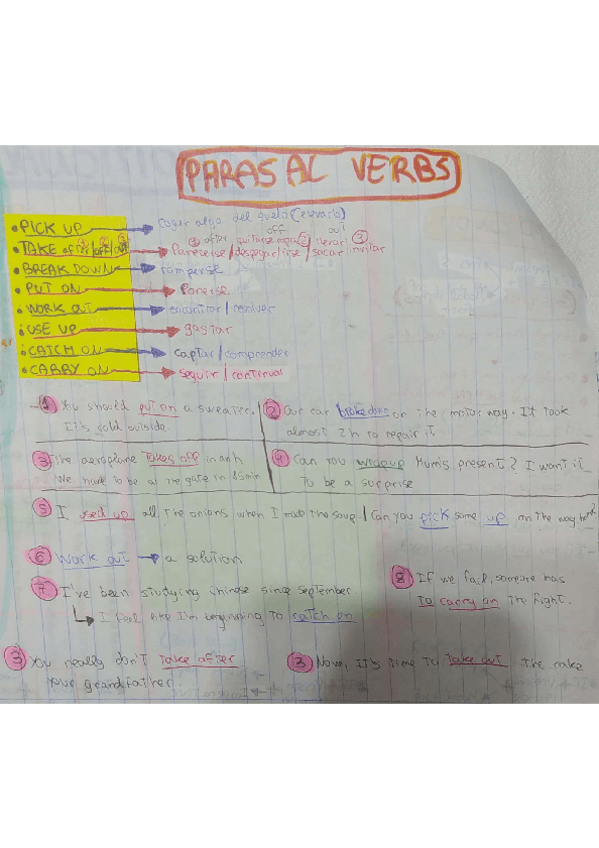 PARASAL VERBS
• PICK UP → coger algo del suelo (elevarlo)
off out
• TAKE after/off/out → ① after quitarse ropa ② llevar ③
Parecerse/despegar/irse/sacar invitar
• BREAK DOWN → romperse
• PUT ON → Ponerse
• WORK OUT → encontrar/resolver
• USE UP → gastar
• CATCH ON → captar/comprender
• CARRY ON → seguir/continuar
1 You should put on a sweater.
It's cold outside.
2 Our car broke down on the motorway. It took
almost 2h to repair it
3 The aeroplane takes off in an h
We have to be at the gate in 45min
4 Can you Mum's present? I want it
to be a surprise
5 I used up all the onions when I made the soup / Can you pick some up on the way
6 Work out → a solution
7 I've been studying chinese since september
↳ I feel like I'm beginning to catch on
8 If we fail, someone has
to carry on the fight.
3 You really don't take after
your grandfather.
3 Now, it's time to take out the cake